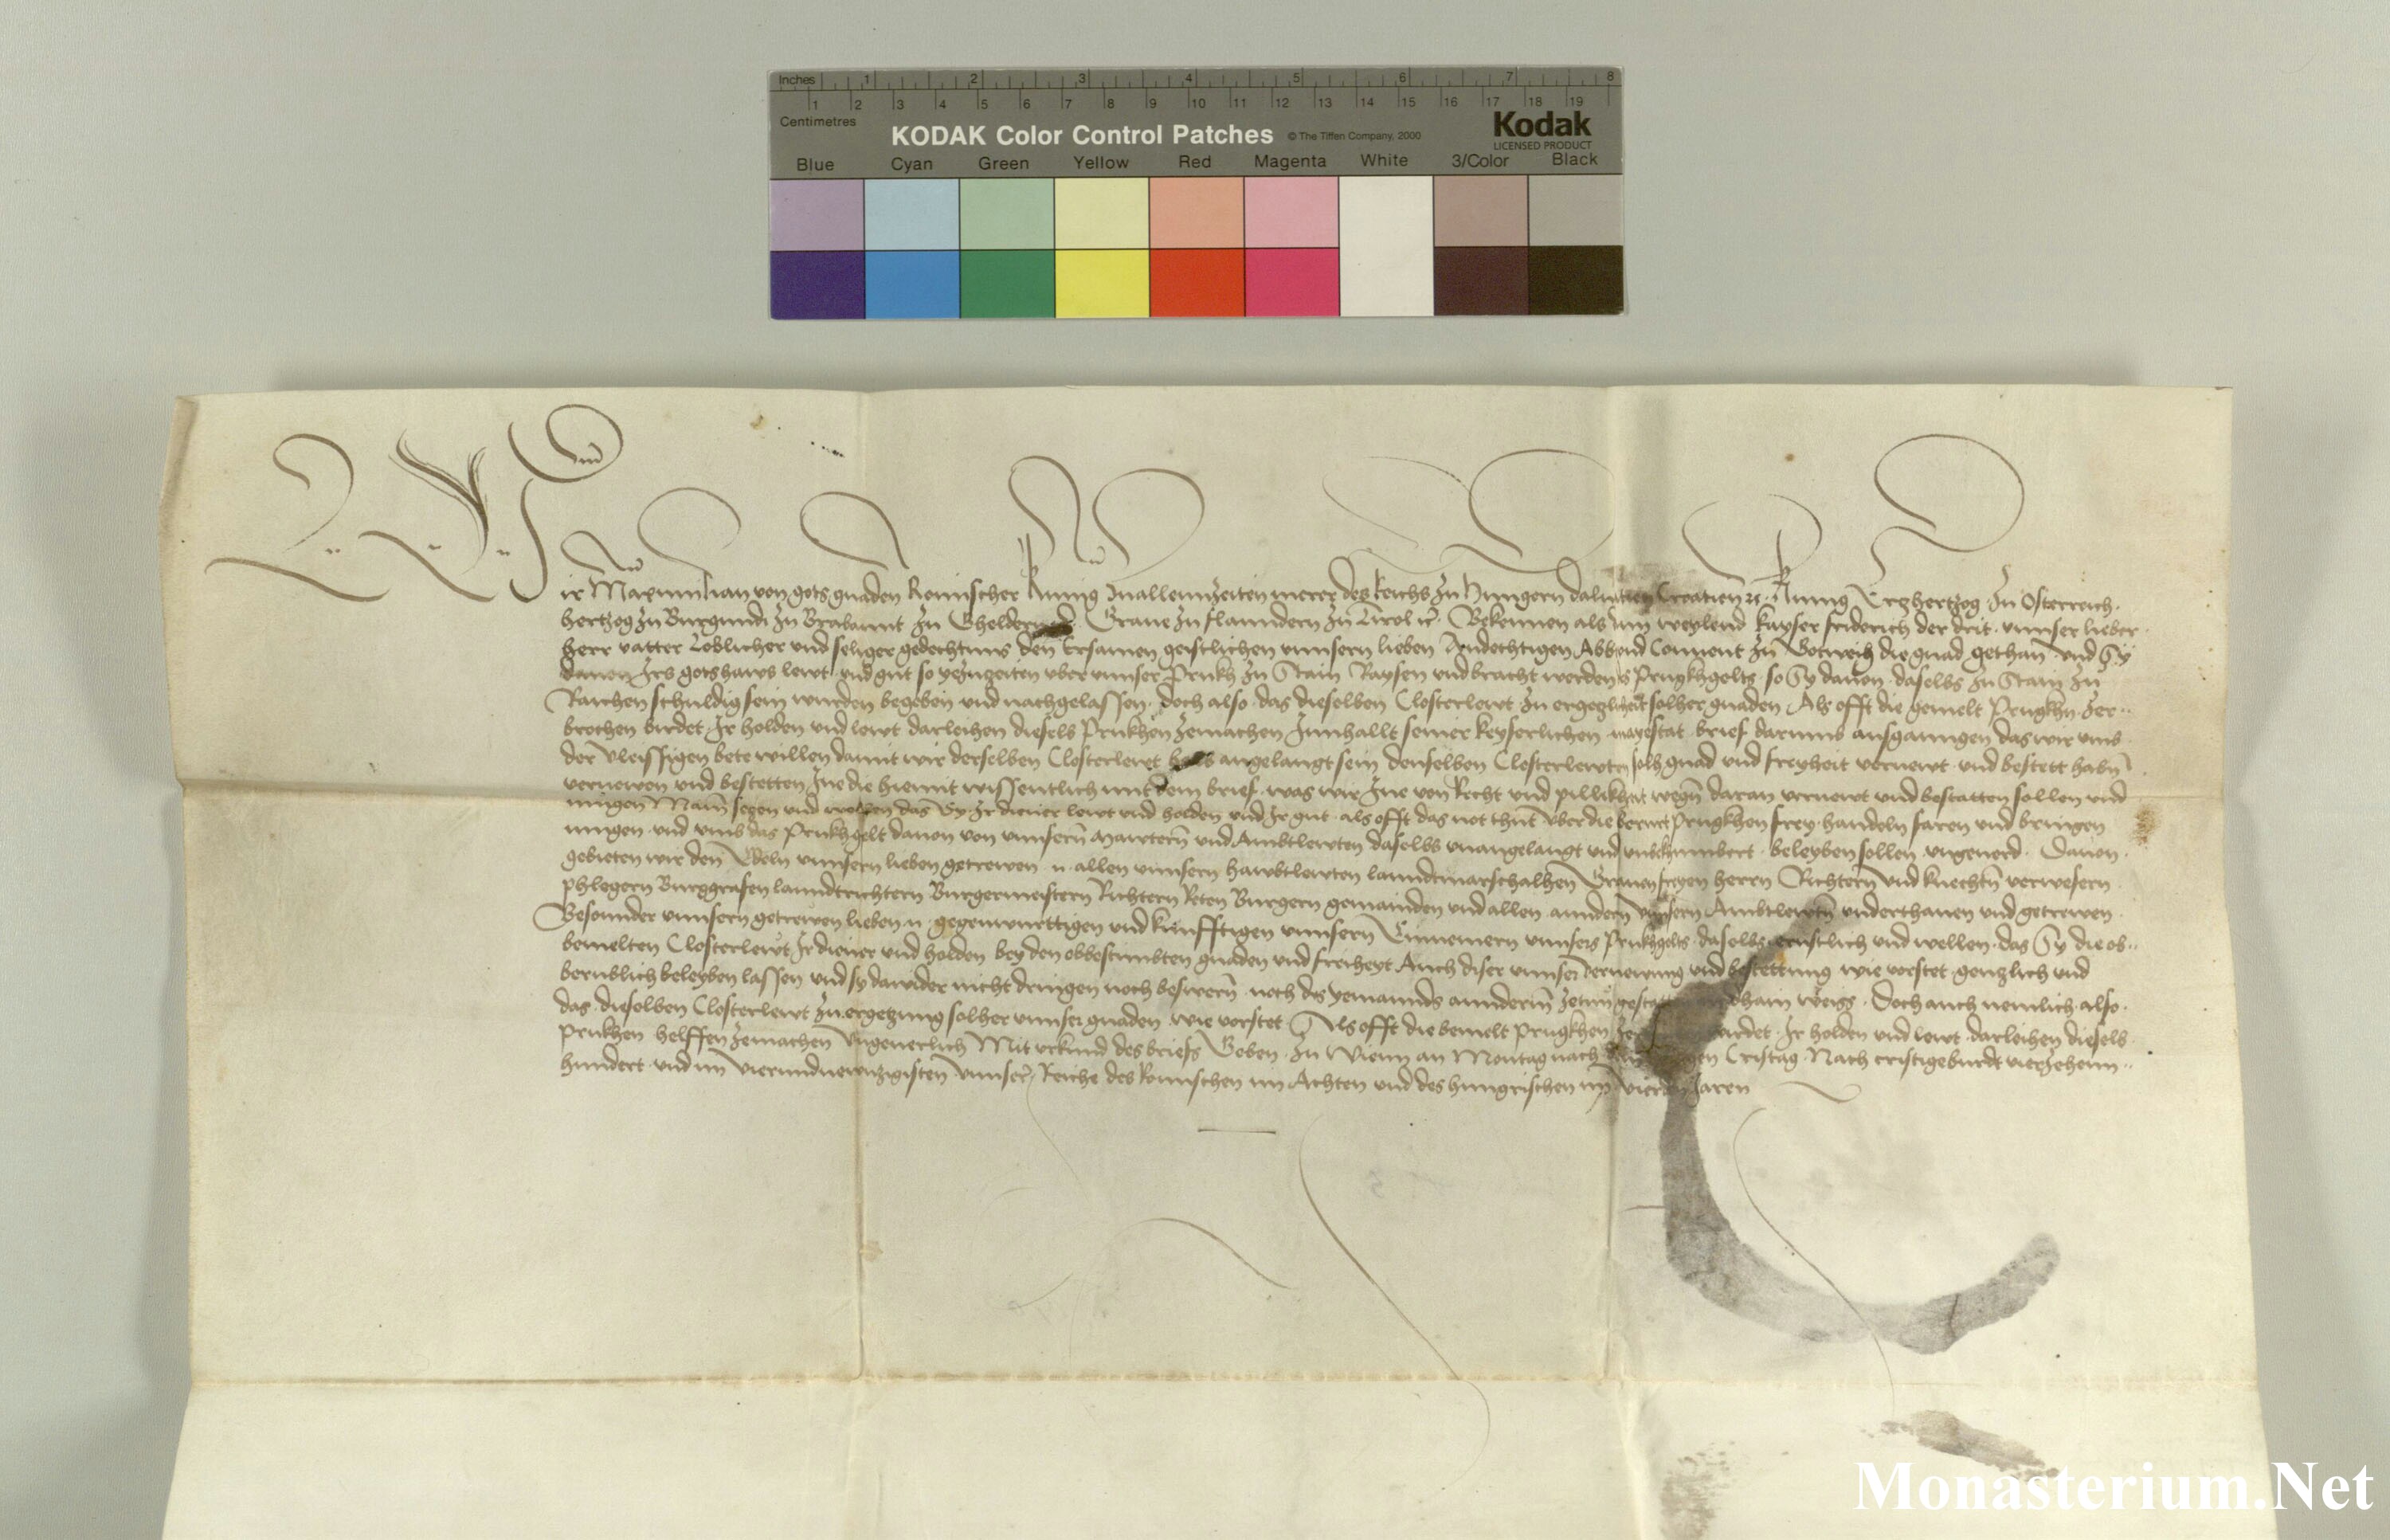 Inches 1 2 3 4 5 6 7 8
1 2 3 4 5 6 7 8 9 10 11 12 13 14 15 16 17 18 19
Centimetres
KODAK Color Control Patches © The Tiffen Company, 2000 Kodak
LICENSED PRODUCT
Blue Cyan Green Yellow Red Magenta White 3/Color Black
Wir Maximilian von gots gnaden Romischer Kunig zu allenn zeiten merer des Reichs zu Hungern dalmatien Croatien rc. Kunig Ertzhertzog zu Osterreich
hertzog zu Burgundi zu Brabannt zu Gheldern Graue zu flanndern zu Tirol rc. Bekennen als nu weylend kayser friderich der drit vnnser lieber
herr vatter loblicher vnd seliger gedechtnus den Ersamen geistlichen vnnsern lieben Andechtigen Abbt vnd Conuent zu Gotweig die gnad gethan vnd Sy
dauon Irs gotshaws lewt vnd gut so ye zuzeiten vber vnnser Prukh zu Stain Raysen vnd bracht werden Prugkhgelts so Sy dauon daselbs zu Stain zu
Raichen schuldig sein wurden begeben vnd nachgelassen doch also das dieselben Closterlewt zu solher gnaden Als offt die gemelt Prugkhn zer
brochen wirdet Ir holden vnd lewt darleihen dieselb Prukhen zemachen Innhallt seiner keyserlichen mayestat brief darumb ausgangen das wir vmb
der vleissigen bete willen damit wir derselben Closterlewt angelangt sein denselben Closterlewten solh gnad vnd freyheit vernewt vnd bestett habn
vernewen vnd bestetten Ine die hiemit wissentlich mit dem brief was wir Ine von Recht vnd pillikhait wegn daran vernewt vnd bestatten sollen vnd
mugen Mainn setzen vnd wellen das Sy Ir diener lewt vnd holden vnd Ir gut als offt das not thut vber die berurt Prugkhen frey hanndeln faren vnd bringen
mugen vnd vmb das Prukhgelt dauon von vnnsern Mawtern vnd Ambtlewten daselbs vnangelangt vnd vnbekumbert beleyben sollen vngeuerd Dauon
gebieten wir den Edeln vnnsern lieben getrewen n allen vnnsern hawbtlewten lanndtmarschalhen Grauen freyen herrn Rittern vnd knechtn verwesern
phlegern Burggrafen lanndtrichtern Burgermeistern Richtern Reten Burgern gemainden vnd allen anndern vnnsern Ambtlewtn vnderthanen vnd getrewen
Besonnder vnnsern getrewen lieben n gegenwurttigen vnd kunfftigen vnnsern Einnemern vnnsers Prukhgelts daselbs ernstlich vnd wellen das Sy die ob
bemelten Closterlewt Ir diener vnd holden bey den obbestimbten gnaden vnd freiheyt Auch diser vnnser vernewung vnd bestettung wie vorstet genntzlich vnd
berublich beleyben lassen vnd sy dawider nicht dringen noch beswern noch des yemannds anndern zetun gestatten khain weiss Doch auch nemlich also
das dieselben Closterlewt zu ergetzung solher vnnser gnaden wie vorstet Als offt die bemelt prugkhen wirdet Ir holden vnd lewt darleihen dieselb
prukhen helffen zemachen vngeuerlich Mit vrkund des briefs Geben zu Wienn an Montag nach Cristag Nach cristi geburdt vierzehenn
hundert vnd im vierundnewnzigisten vnnser Reiche des Romischen im Achten vnd des hungrischen im vierden Jaren
Monasterium.Net